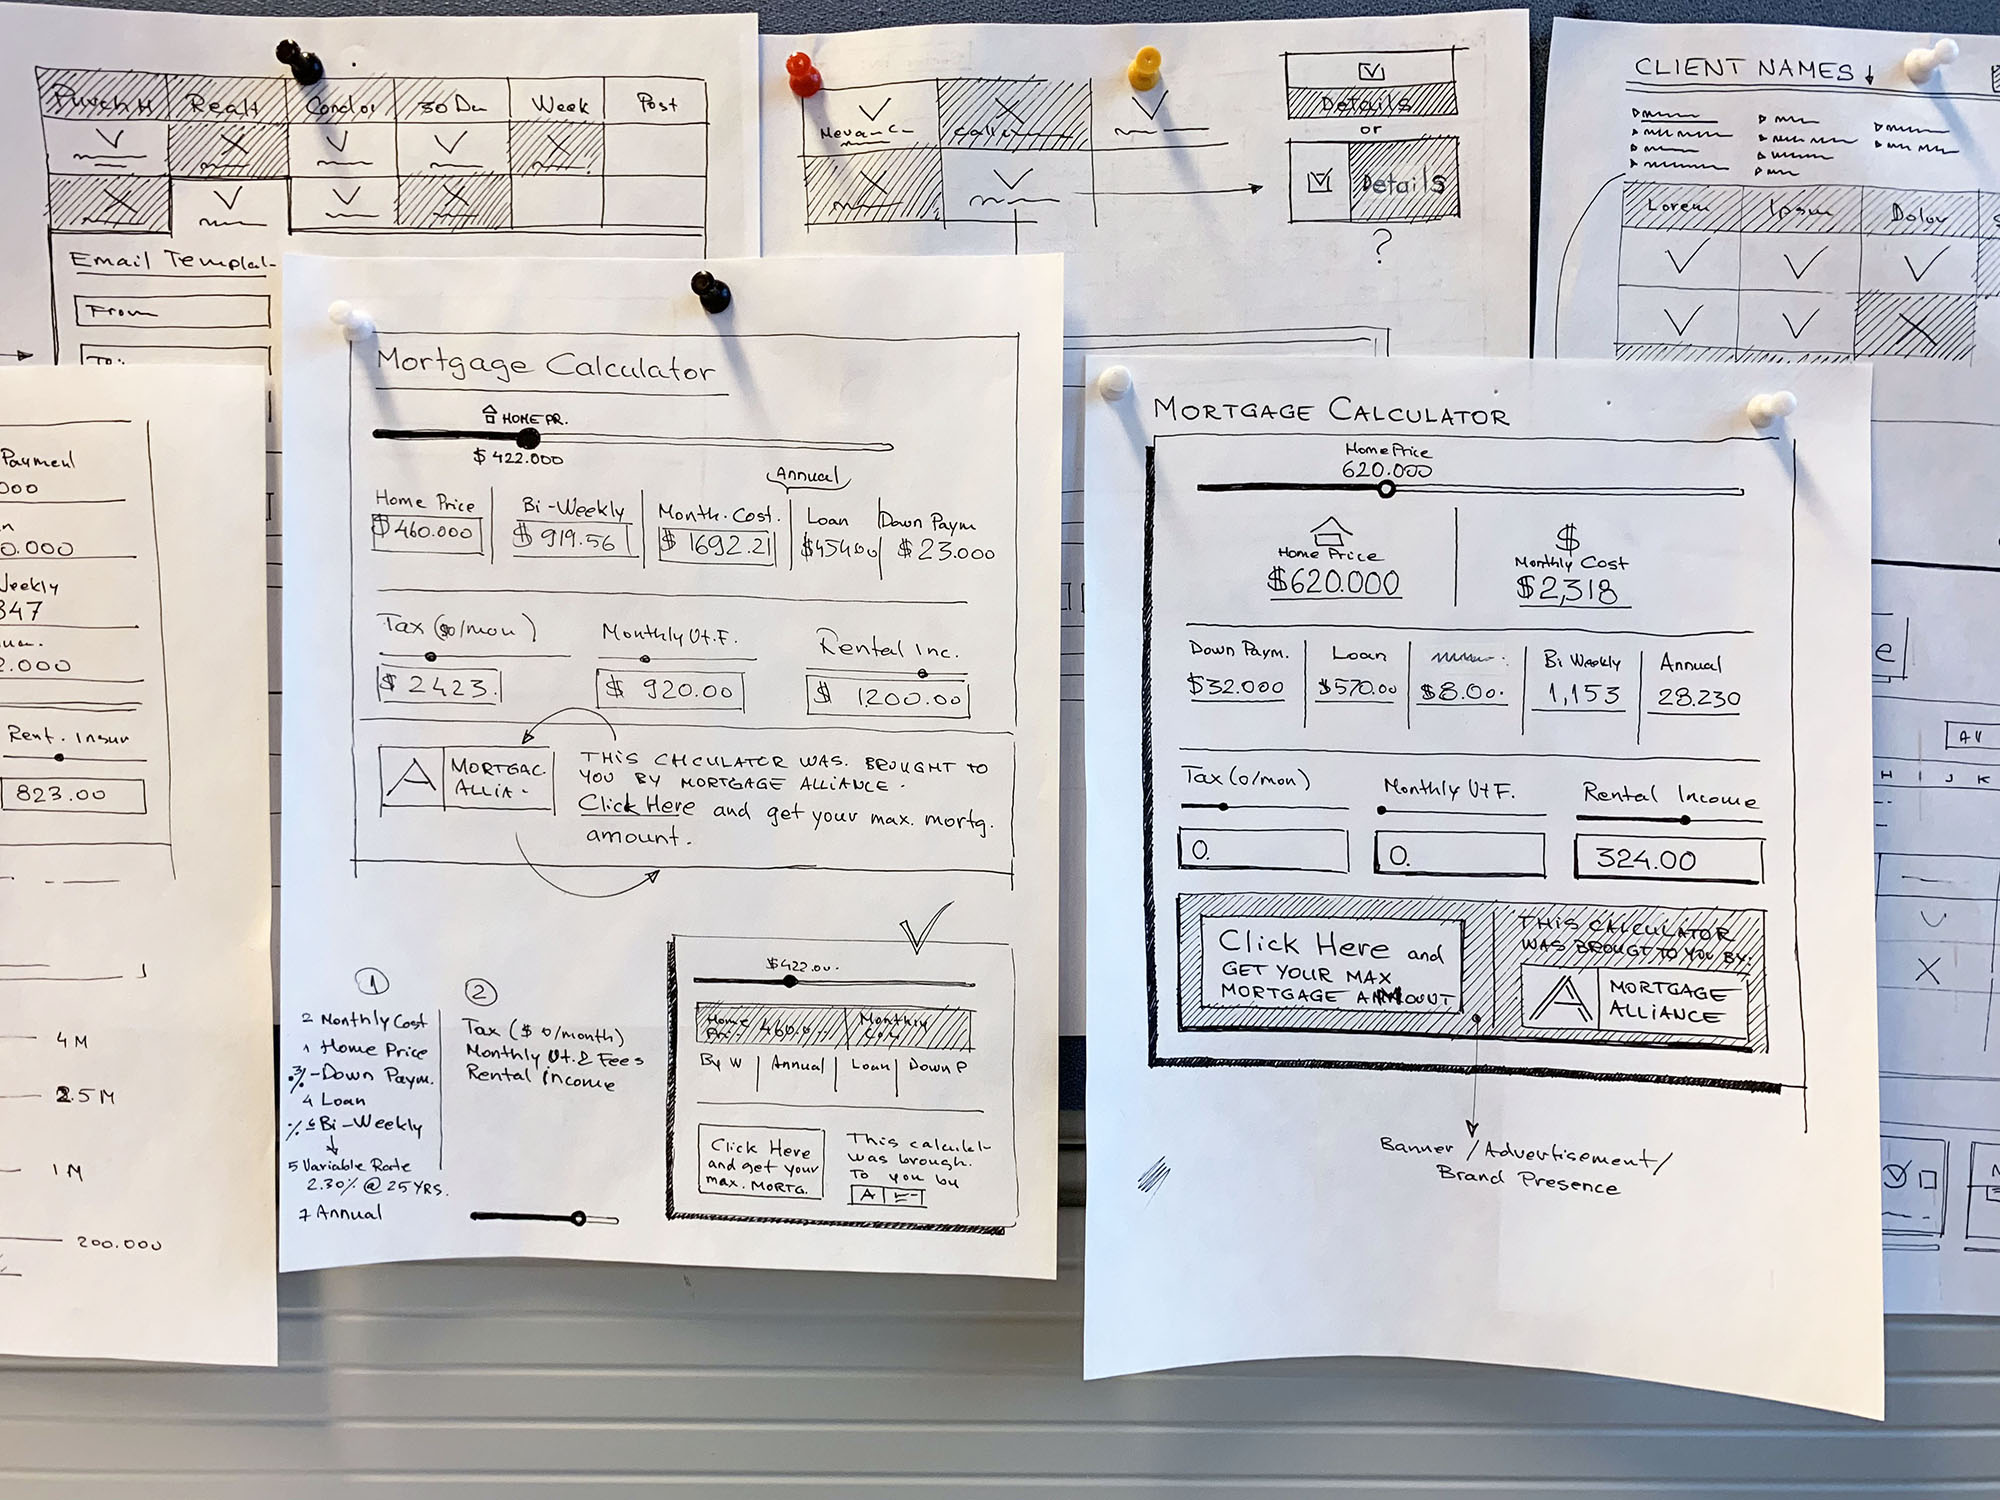 Realt
Condor
30 Da
Week
Post
Email Templat-
From
To:
Details
or
Details
?
CLIENT NAMES ↓
Lorem
Ipsum
Dolor
Payment
000
0.000
Weekly
347
2.000
Rent. Insur
823.00
4 M
2.5 M
1 M
200.000
Mortgage Calculator
HOME PR.
$ 422.000
Annual
Home Price
Bi-Weekly
Month. Cost.
Loan
Down Paym
$ 460.000
$ 919.56
$ 1692.21
$ 23.000
Tax ($0/mon)
Monthly Ut.F.
Rental Inc.
$ 2423.
$ 920.00
$ 1200.00
A
MORTGAC.
ALLIA -
THIS CALCULATOR WAS. BROUGHT TO
YOU BY MORTGAGE ALLIANCE.
Click Here and get your max. mortg.
amount.
1
2 Monthly Cost
1 Home Price
3 % - Down Paym.
4 Loan
% 6 Bi-Weekly
5 Variable Rate
2.30% @ 25 YRS.
7 Annual
2
Tax ($ 0/month)
Monthly Ut. & Fees
Rental income
$422.00.
Home
Pri.
460.0
Monthly
Cos
By W
Annual
Loan
Down P
Click Here
and get your
max. MORTG.
This calculat-
was brough.
To you by
A
MORTGAGE CALCULATOR
Home Price
620.000
Home Price
$620.000
$
Monthly Cost
$2,318
Down Paym.
Loan
Bi Weekly
Annual
$32.000
$570.00
$8.00.
1,153
28.230
Tax (0/mon)
Monthly Ut F.
Rental Income
0.
0.
324.00
Click Here and
GET YOUR MAX
MORTGAGE AMOUT
THIS CALCULATOR
WAS BROUGT TO YOU BY:
A
MORTGAGE
ALLIANCE
Banner / Advertisement /
Brand Presence
e
H I J K